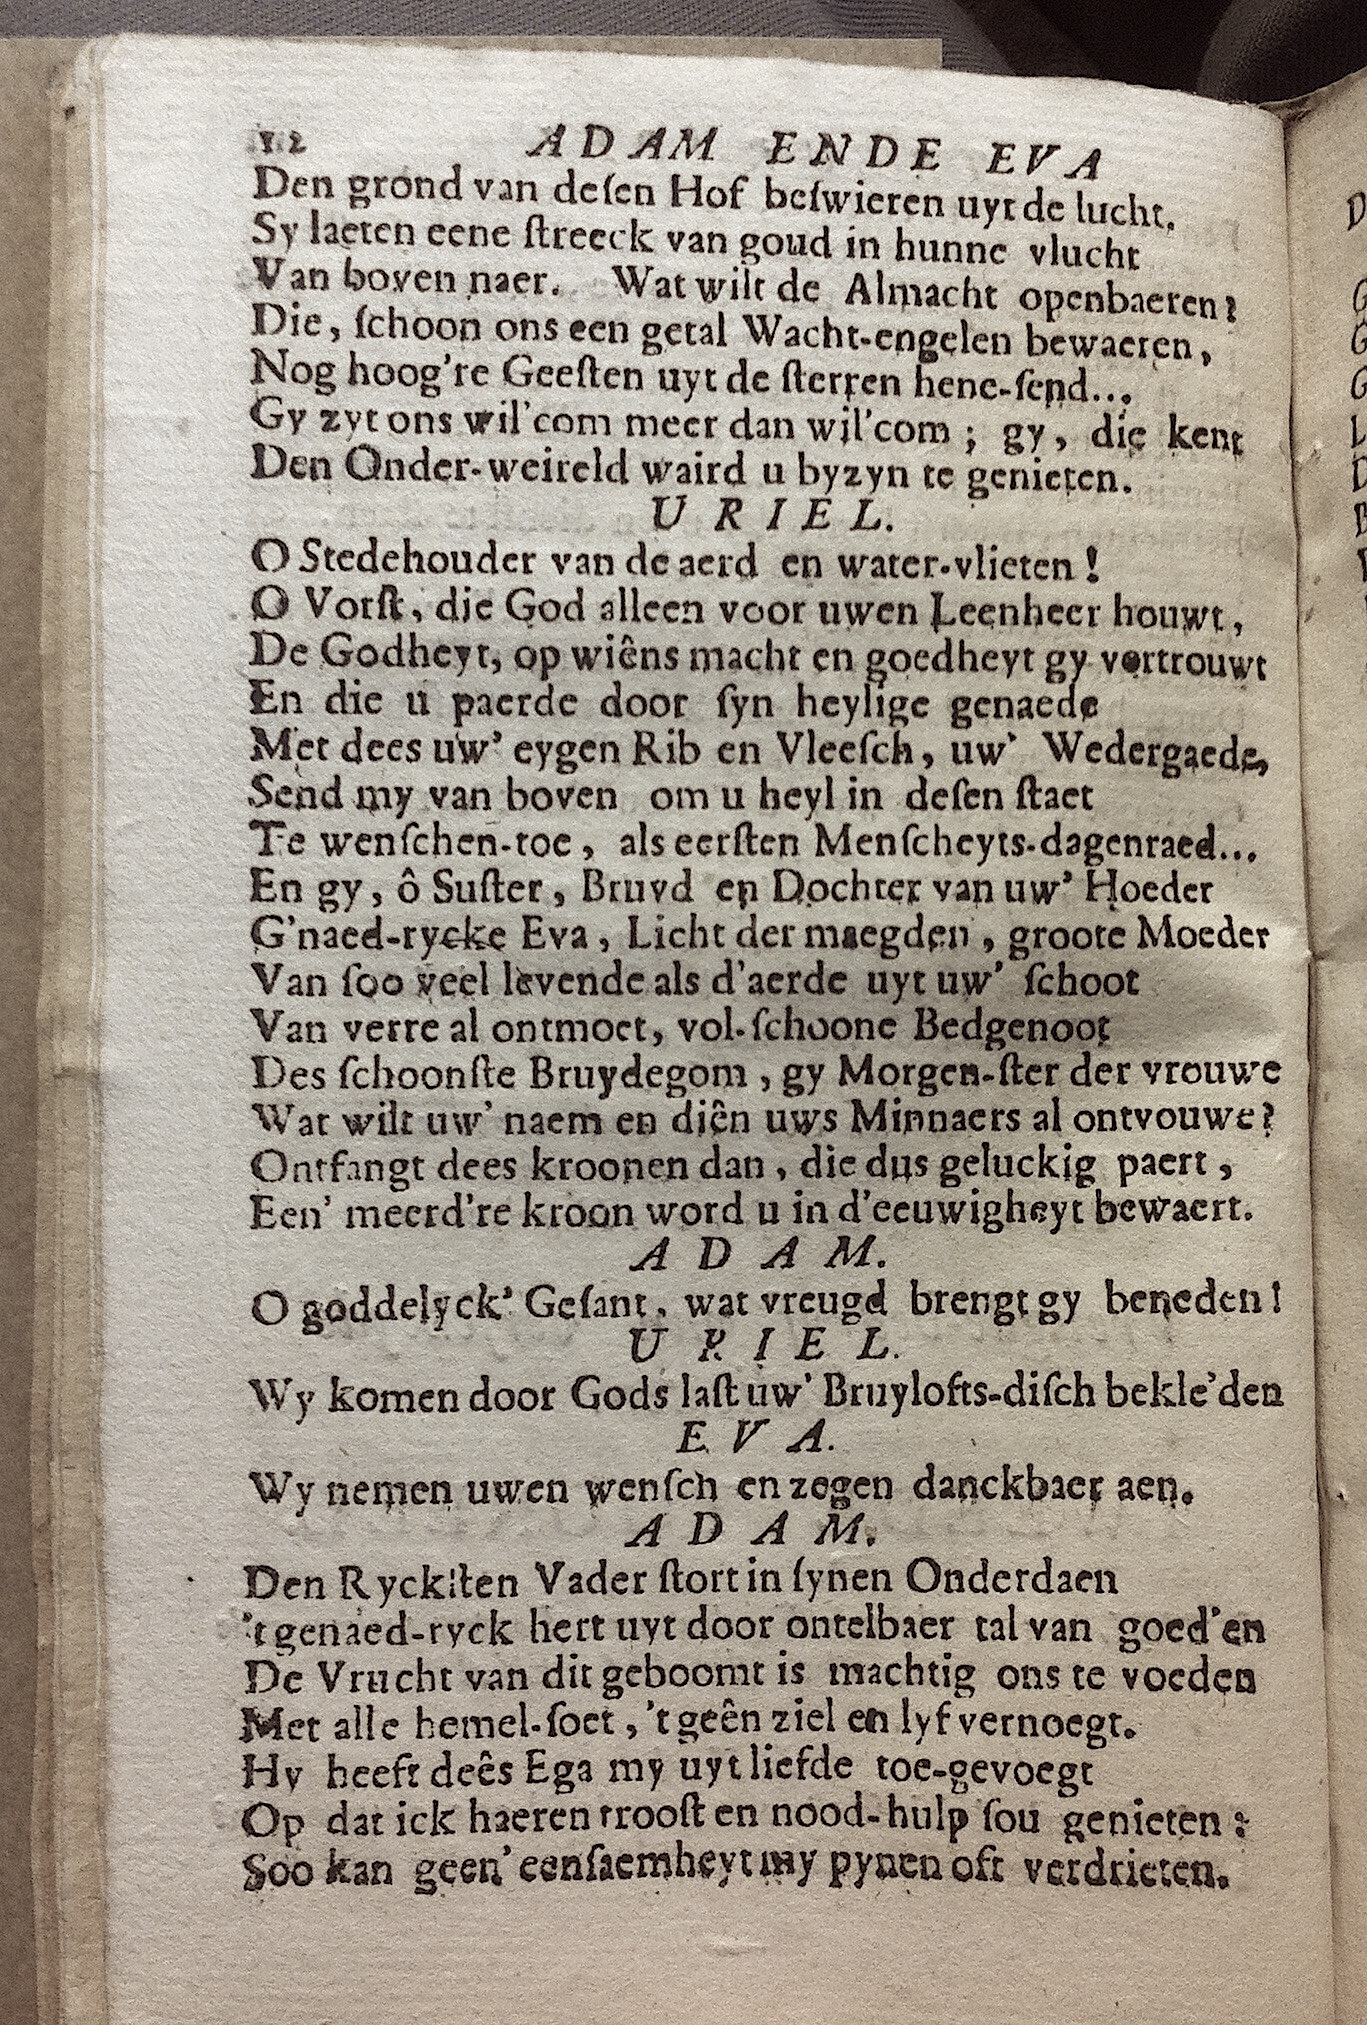 12 ADAM ENDE EVA
Den grond van deſen Hof beſwieren uyt de lucht.
Sy laeten eene ſtreeck van goud in hunne vlucht
Van boven naer. Wat wilt de Almacht openbaeren?
Die, ſchoon ons een getal Wacht-engelen bewaeren,
Nog hoog're Geeſten uyt de ſterren hene-ſend...
Gy zyt ons wil'com meer dan wil'com; gy, die kent
Den Onder-weireld waird u byzyn te genieten.
URIEL.
O Stedehouder van de aerd en water-vlieten!
O Vorſt, die God alleen voor uwen Leenheer houwt,
De Godheyt, op wiêns macht en goedheyt gy vertrouwt
En die u paerde door ſyn heylige genaede
Met dees uw' eygen Rib en Vleeſch, uw' Wedergaede,
Send my van boven om u heyl in deſen ſtaet
Te wenſchen-toe, als eerſten Menſcheyts-dagenraed...
En gy, ô Suſter, Bruyd en Dochter van uw' Hoeder
G'naed-rycke Eva, Licht der maegden, groote Moeder
Van ſoo veel levende als d'aerde uyt uw' ſchoot
Van verre al ontmoet, vol-ſchoone Bedgenoot
Des ſchoonſte Bruydegom, gy Morgen-ſter der vrouwe
Wat wilt uw' naem en diên uws Minnaers al ontvouwe?
Ontfangt dees kroonen dan, die dus geluckig paert,
Een' meerd're kroon word u in d'eeuwigheyt bewaert.
ADAM.
O goddelyck' Geſant, wat vreugd brengt gy beneden!
URIEL.
Wy komen door Gods laſt uw' Bruylofts-diſch bekle'den
EVA.
Wy nemen uwen wenſch en zegen danckbaer aen.
ADAM.
Den Ryckſten Vader ſtort in ſynen Onderdaen
't genaed-ryck hert uyt door ontelbaer tal van goed'en
De Vrucht van dit geboomt is machtig ons te voeden
Met alle hemel-ſoet, 't geên ziel en lyf vernoegt.
Hy heeft deês Ega my uyt liefde toe-gevoegt
Op dat ick haeren trooſt en nood-hulp ſou genieten:
Soo kan geen' eenſaemheyt my pynen oft verdrieten.